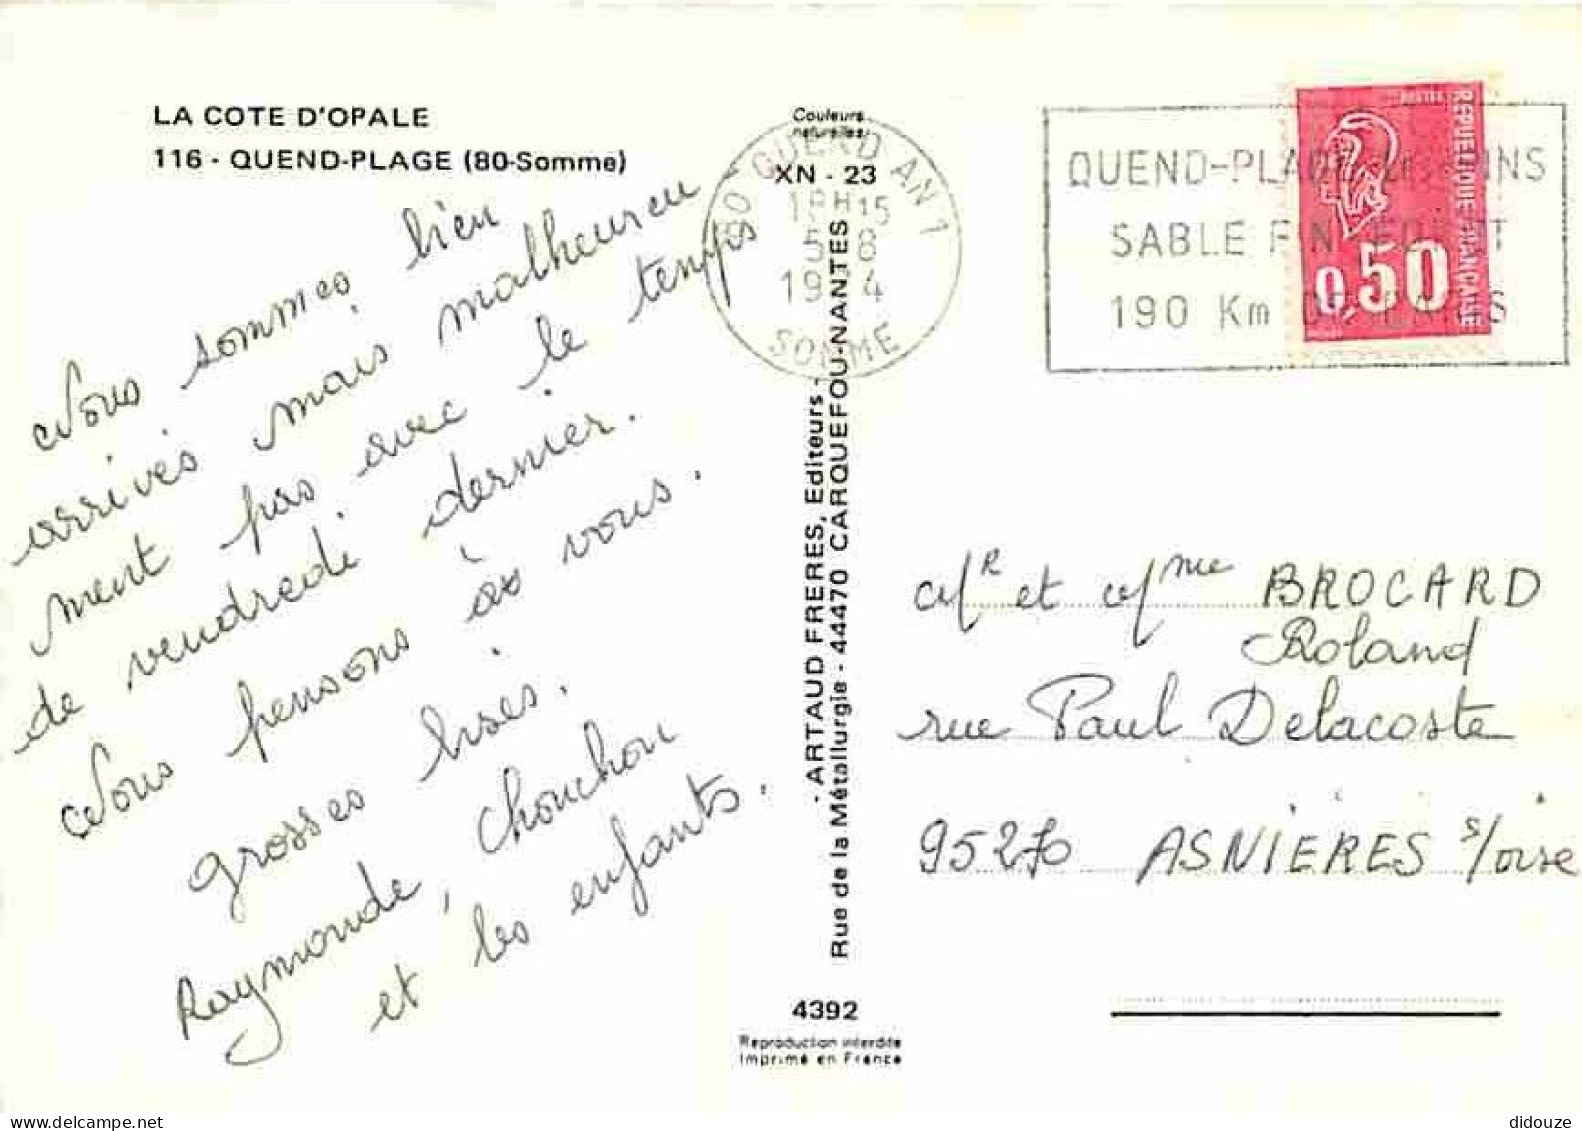 LA COTE D'OPALE
116 - QUEND-PLAGE (80-Somme)
Nous sommes bien
arrivés mais malheureu
ment pas avec le temps
de vendredi dernier.
Nous pensons à vous.
grosses bises.
Raymonde, chouchou
et les enfants.
Couleurs
naturelles
XN - 23
80 QUEND AN 1
18H15
5 - 8
1974
SOMME
QUEND-PLAGE les PINS
SABLE FIN FORET
190 Km DE PARIS
REPUBLIQUE FRANÇAISE
0,50
- ARTAUD FRERES, Editeurs -
Rue de la Métallurgie - 44470 CARQUEFOU-NANTES
Mr et Mme BROCARD
Roland
rue Paul Delacoste
95270 ASNIERES s/oise
4392
Reproduction interdite
Imprimé en France
didouze